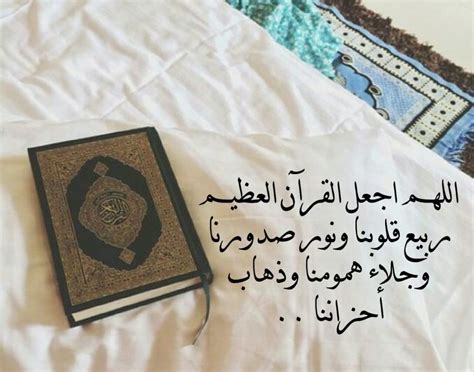 اللهم اجعل القرآن العظيم
ربيع قلوبنا ونور صدورنا
وجلاء همومنا وذهاب
أحزاننا . .
القرآن الكريم